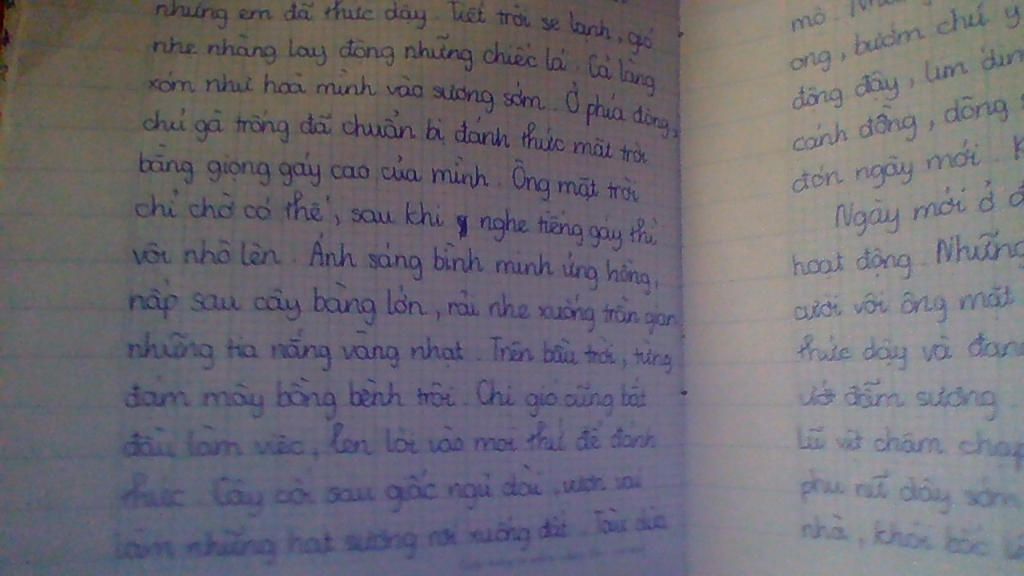 nhưng em đã thức dậy. Tiết trời se lạnh, gió
nhẹ nhàng lay động những chiếc lá. Cả làng
xóm như hoà mình vào sương sớm. Ở phía đông,
chú gà trống đã chuẩn bị đánh thức mặt trời
bằng giọng gáy cao của mình. Ông mặt trời
chỉ chờ có thế, sau khi nghe tiếng gáy thì
vội nhô lên. Ánh sáng bình minh ửng hồng,
nấp sau cây bàng lớn, rải nhẹ xuống trần gian
những tia nắng vàng nhạt. Trên bầu trời, từng
đám mây bồng bềnh trôi. Chị gió cũng bắt
đầu làm việc, len lỏi vào mọi thứ để đánh
thức. Cây cối sau giấc ngủ dài, vươn vai
làm những hạt sương rơi xuống đất.
mò.
ong, bướm chú ý
động đậy, lim dim
cánh đồng, dòng
đón ngày mới.
Ngày mới ở
hoạt động. Những
cười với ông mặt
thức dậy và đang
ướt đẫm sương.
Lũ vịt chậm chạp
phụ nữ dậy sớm
nhà, khói bốc